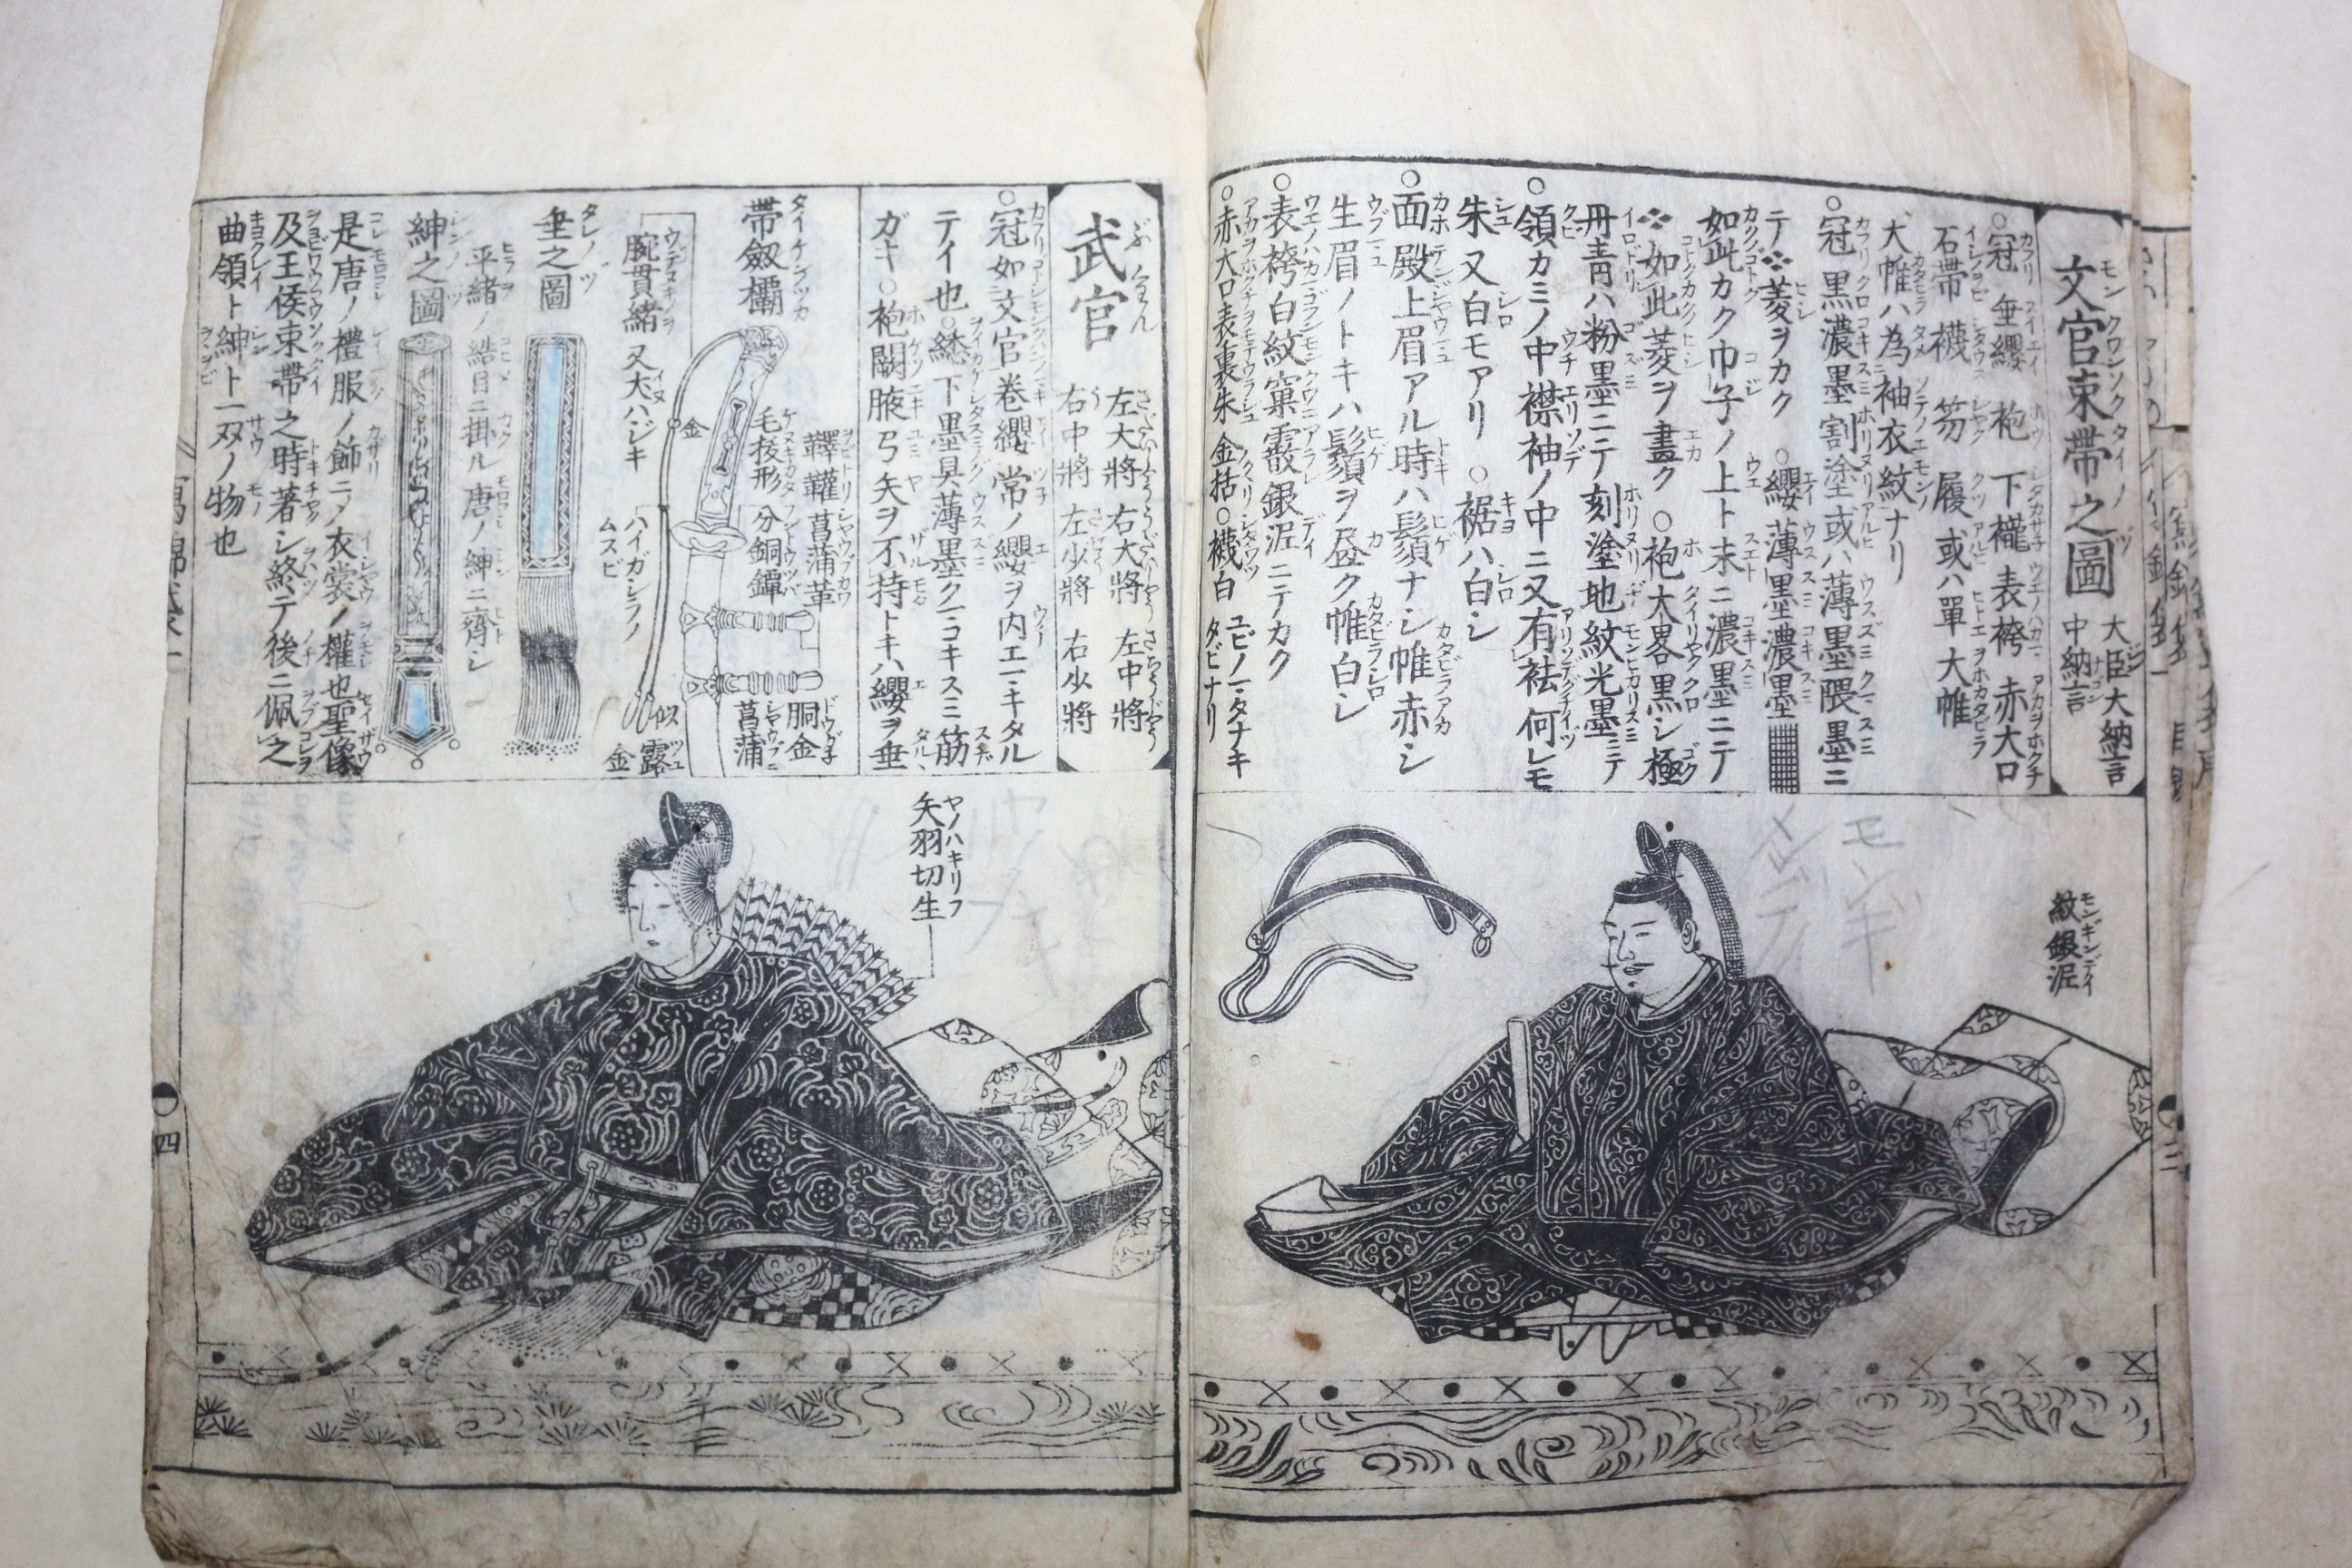 文官束帯之圖 大臣大納言 中納言
○冠 垂纓 袍 下襲 表袴 赤大口
石帯 襪 笏 履 或ハ單 大帷
大帷ハ為袖衣紋ナリ
○冠 黒濃墨割塗或ハ薄墨隈墨ニ
テ菱ヲカク ○纓 薄墨濃墨
如此カク巾子ノ上ト末ニ濃墨ニテ
如此菱ヲ畫ク ○袍大畧黒シ極
丹青ハ粉墨ニテ刻塗地紋光墨ニテ
○領カミノ中襟袖ノ中ニ又有袪何レモ
朱又白モアリ ○裾ハ白シ
○面殿上眉アル時ハ鬚ナシ帷赤シ
生眉ノトキハ鬚ヲ昼ク帷白シ
○表袴白紋窠霰銀泥ニテカク
○赤大口表裏朱 金括○襪白 ユビノマタナキ
タビナリ
紋銀泥
モンギ
武官
左大將 右大將 左中將
右中將 左少將 右少將
○冠如文官巻纓常ノ纓ヲ内エマキタル
テイ也○緌下墨具薄墨クマコキスミ筋
ガキ○袍闕腋弓矢ヲ不持トキハ纓ヲ垂
帯劔欛
韡 菖蒲革
毛抜形 分銅鐔
胴金
菖蒲
金
腕貫緒 又犬ハジキ
ハイガシラノ
ムスビ
露
金
垂之圖
平緒ノ結目ニ掛ル唐ノ紳ニ齊シ
紳之圖
是唐ノ禮服ノ飾ニノ衣裳ノ權也聖像
及王侯束帯之時著シ終テ後ニ佩之
曲領ト紳ト一双ノ物也
矢羽切生
四